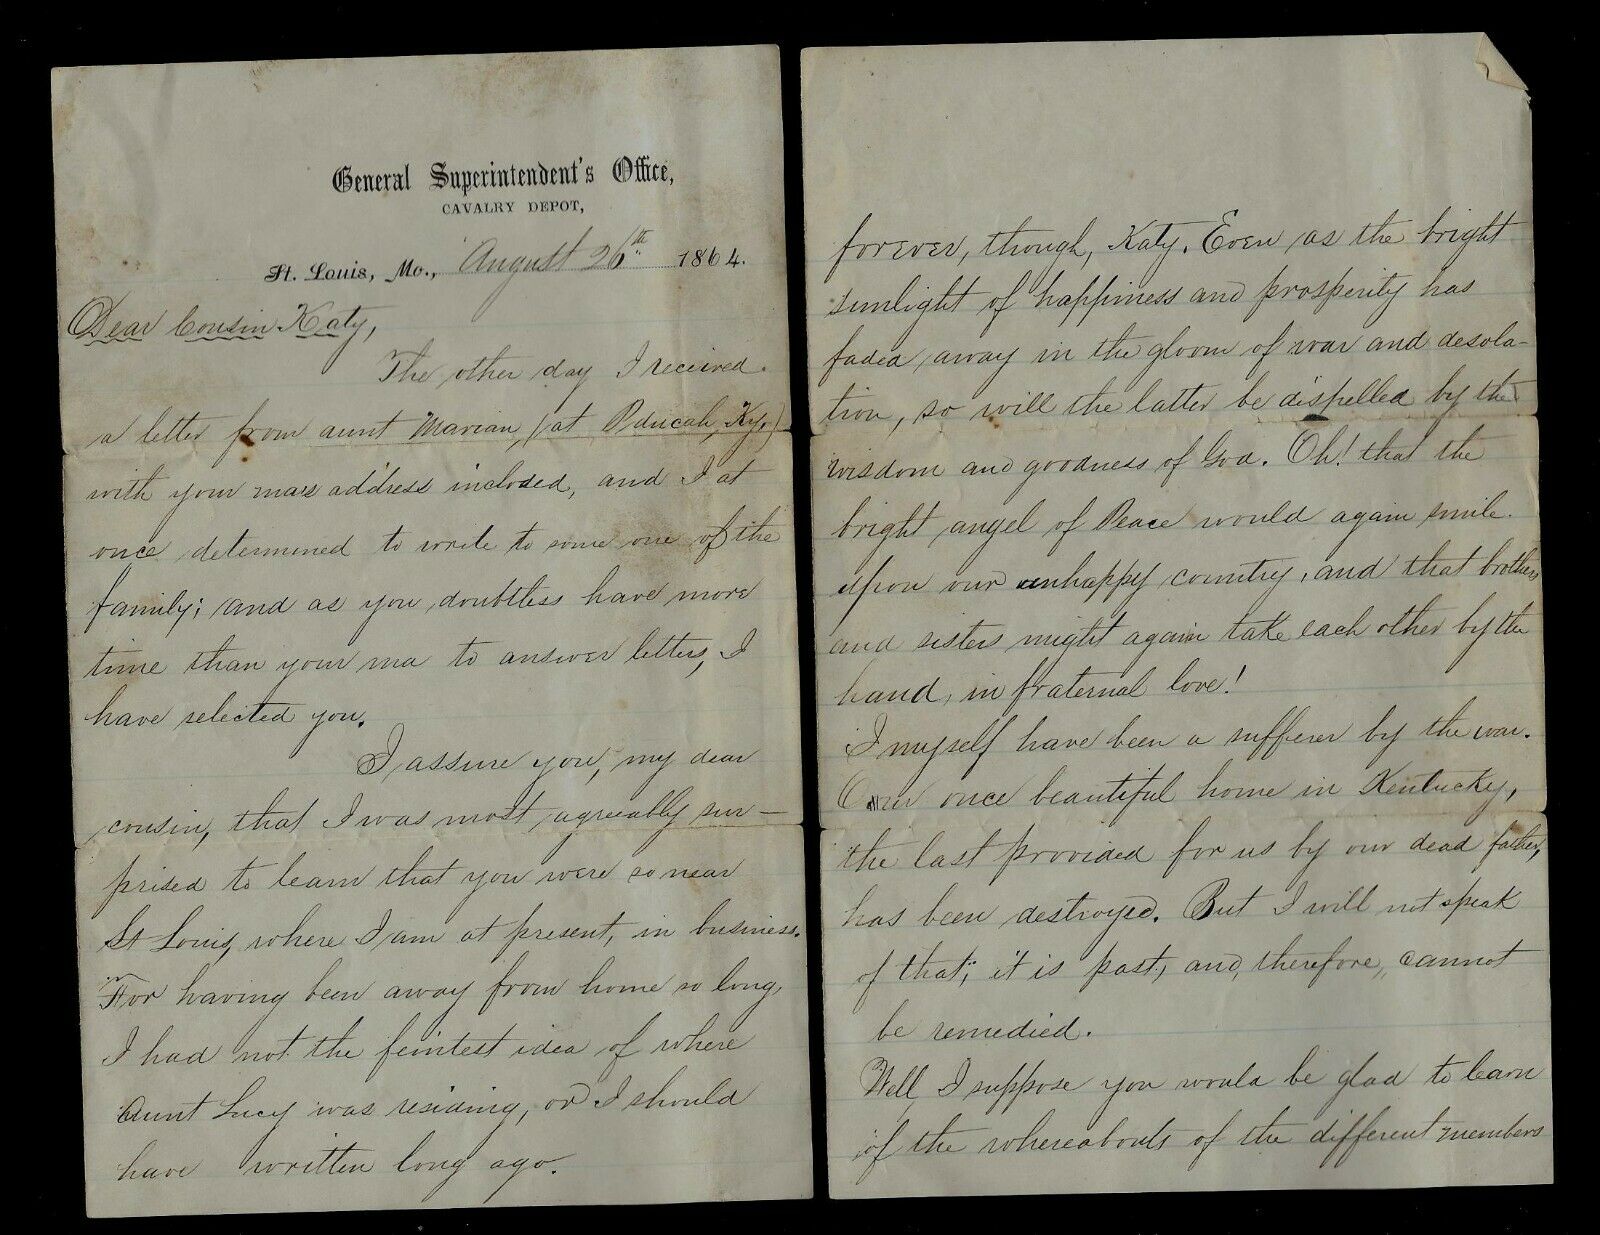 General Superintendent's Office,
CAVALRY DEPOT,
St. Louis, Mo., August 26th 1864.
Dear Cousin Katy,
The other day I received
a letter from aunt Marian, (at Pducah, Ky,)
with your ma's address inclosed, and I at
once determined to write to some one of the
family; and as you doubtless have more
time than your ma to answer letters, I
have selected you.
I assure you, my dear
cousin, that I was most agreeably sur-
prised to learn that you were so near
St Louis, where I am at present, in business.
For having been away from home so long,
I had not the feintest idea of where
Aunt Lucy was residing, or I should
have written long ago.
forever, though, Katy. Even as the bright
sunlight of happiness and prosperity has
faded away in the gloom of war and desola-
tion, so will the latter be dispelled by the
wisdom and goodness of God. Oh! that the
bright angel of Peace would again smile
upon our unhappy country, and that brothers
and sisters might again take each other by the
hand, in fraternal love!
I myself have been a sufferer by the war.
Our once beautiful home in Kentucky,
the last provided for us by our dead father,
has been destroyed. But I will not speak
of that; it is past, and, therefore, cannot
be remedied.
Well, I suppose you would be glad to learn
of the whereabouts of the different members